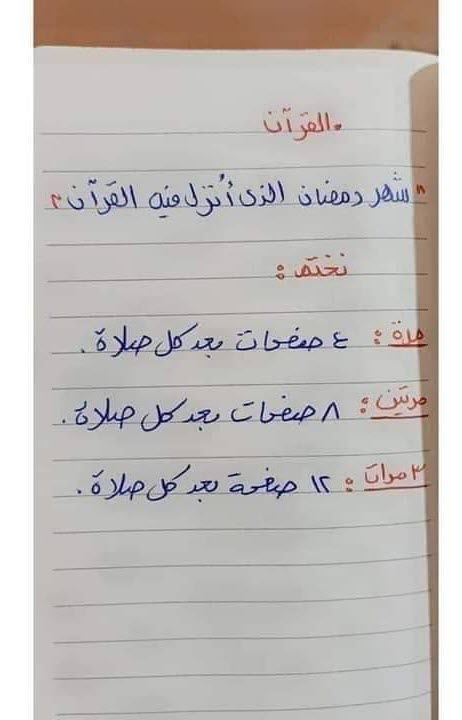 القرآن
" شهر رمضان الذى أُنزل فيه القرآن "
نختم :
مرة : ٤ صفحات بعد كل صلاة .
مرتين : ٨ صفحات بعد كل صلاة .
٣ مرات : ١٢ صفحة بعد كل صلاة .